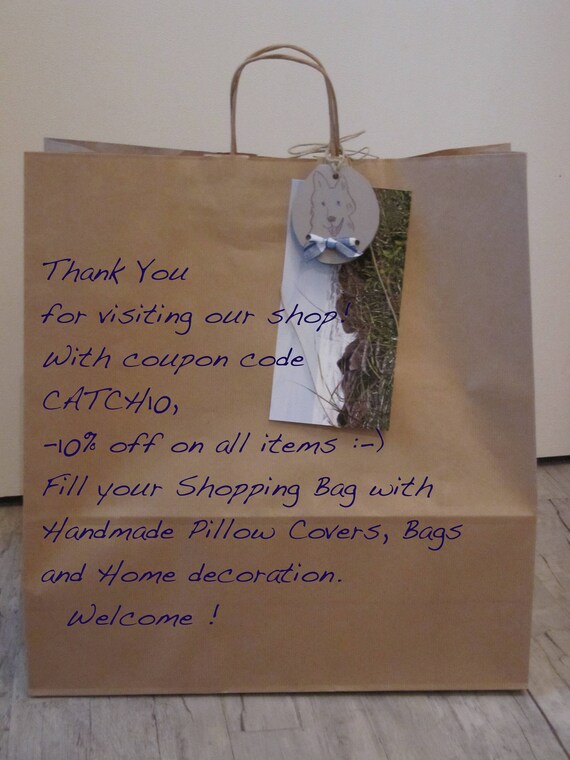 Thank You
for visiting our shop!
With coupon code
CATCH10,
-10% off on all items :-)
Fill your Shopping Bag with
Handmade Pillow Covers, Bags
and Home decoration.
Welcome !